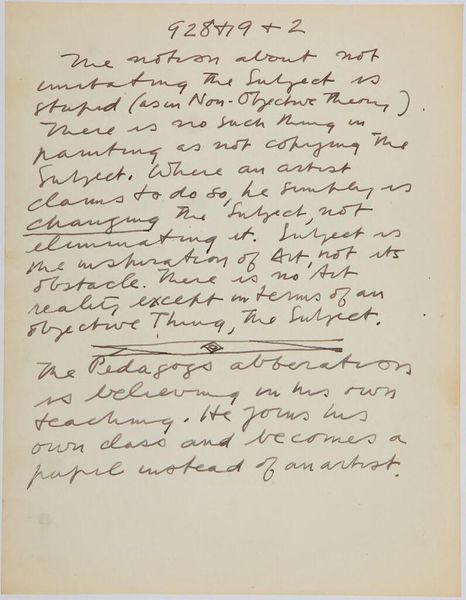 928+19+2
The notion about not
imitating the Subject is
stupid (as in Non-Objective Theory).
There is no such thing in
painting as not copying the
Subject. Where an artist
claims to do so, he simply is
changing the Subject, not
eliminating it. Subject is
the inspiration of Art, not its
obstacle. There is no Art
reality except in terms of an
objective Thing, the Subject.
The Pedagogs abberation
is believing in his own
teaching. He joins his
own class and becomes a
pupil instead of an artist.